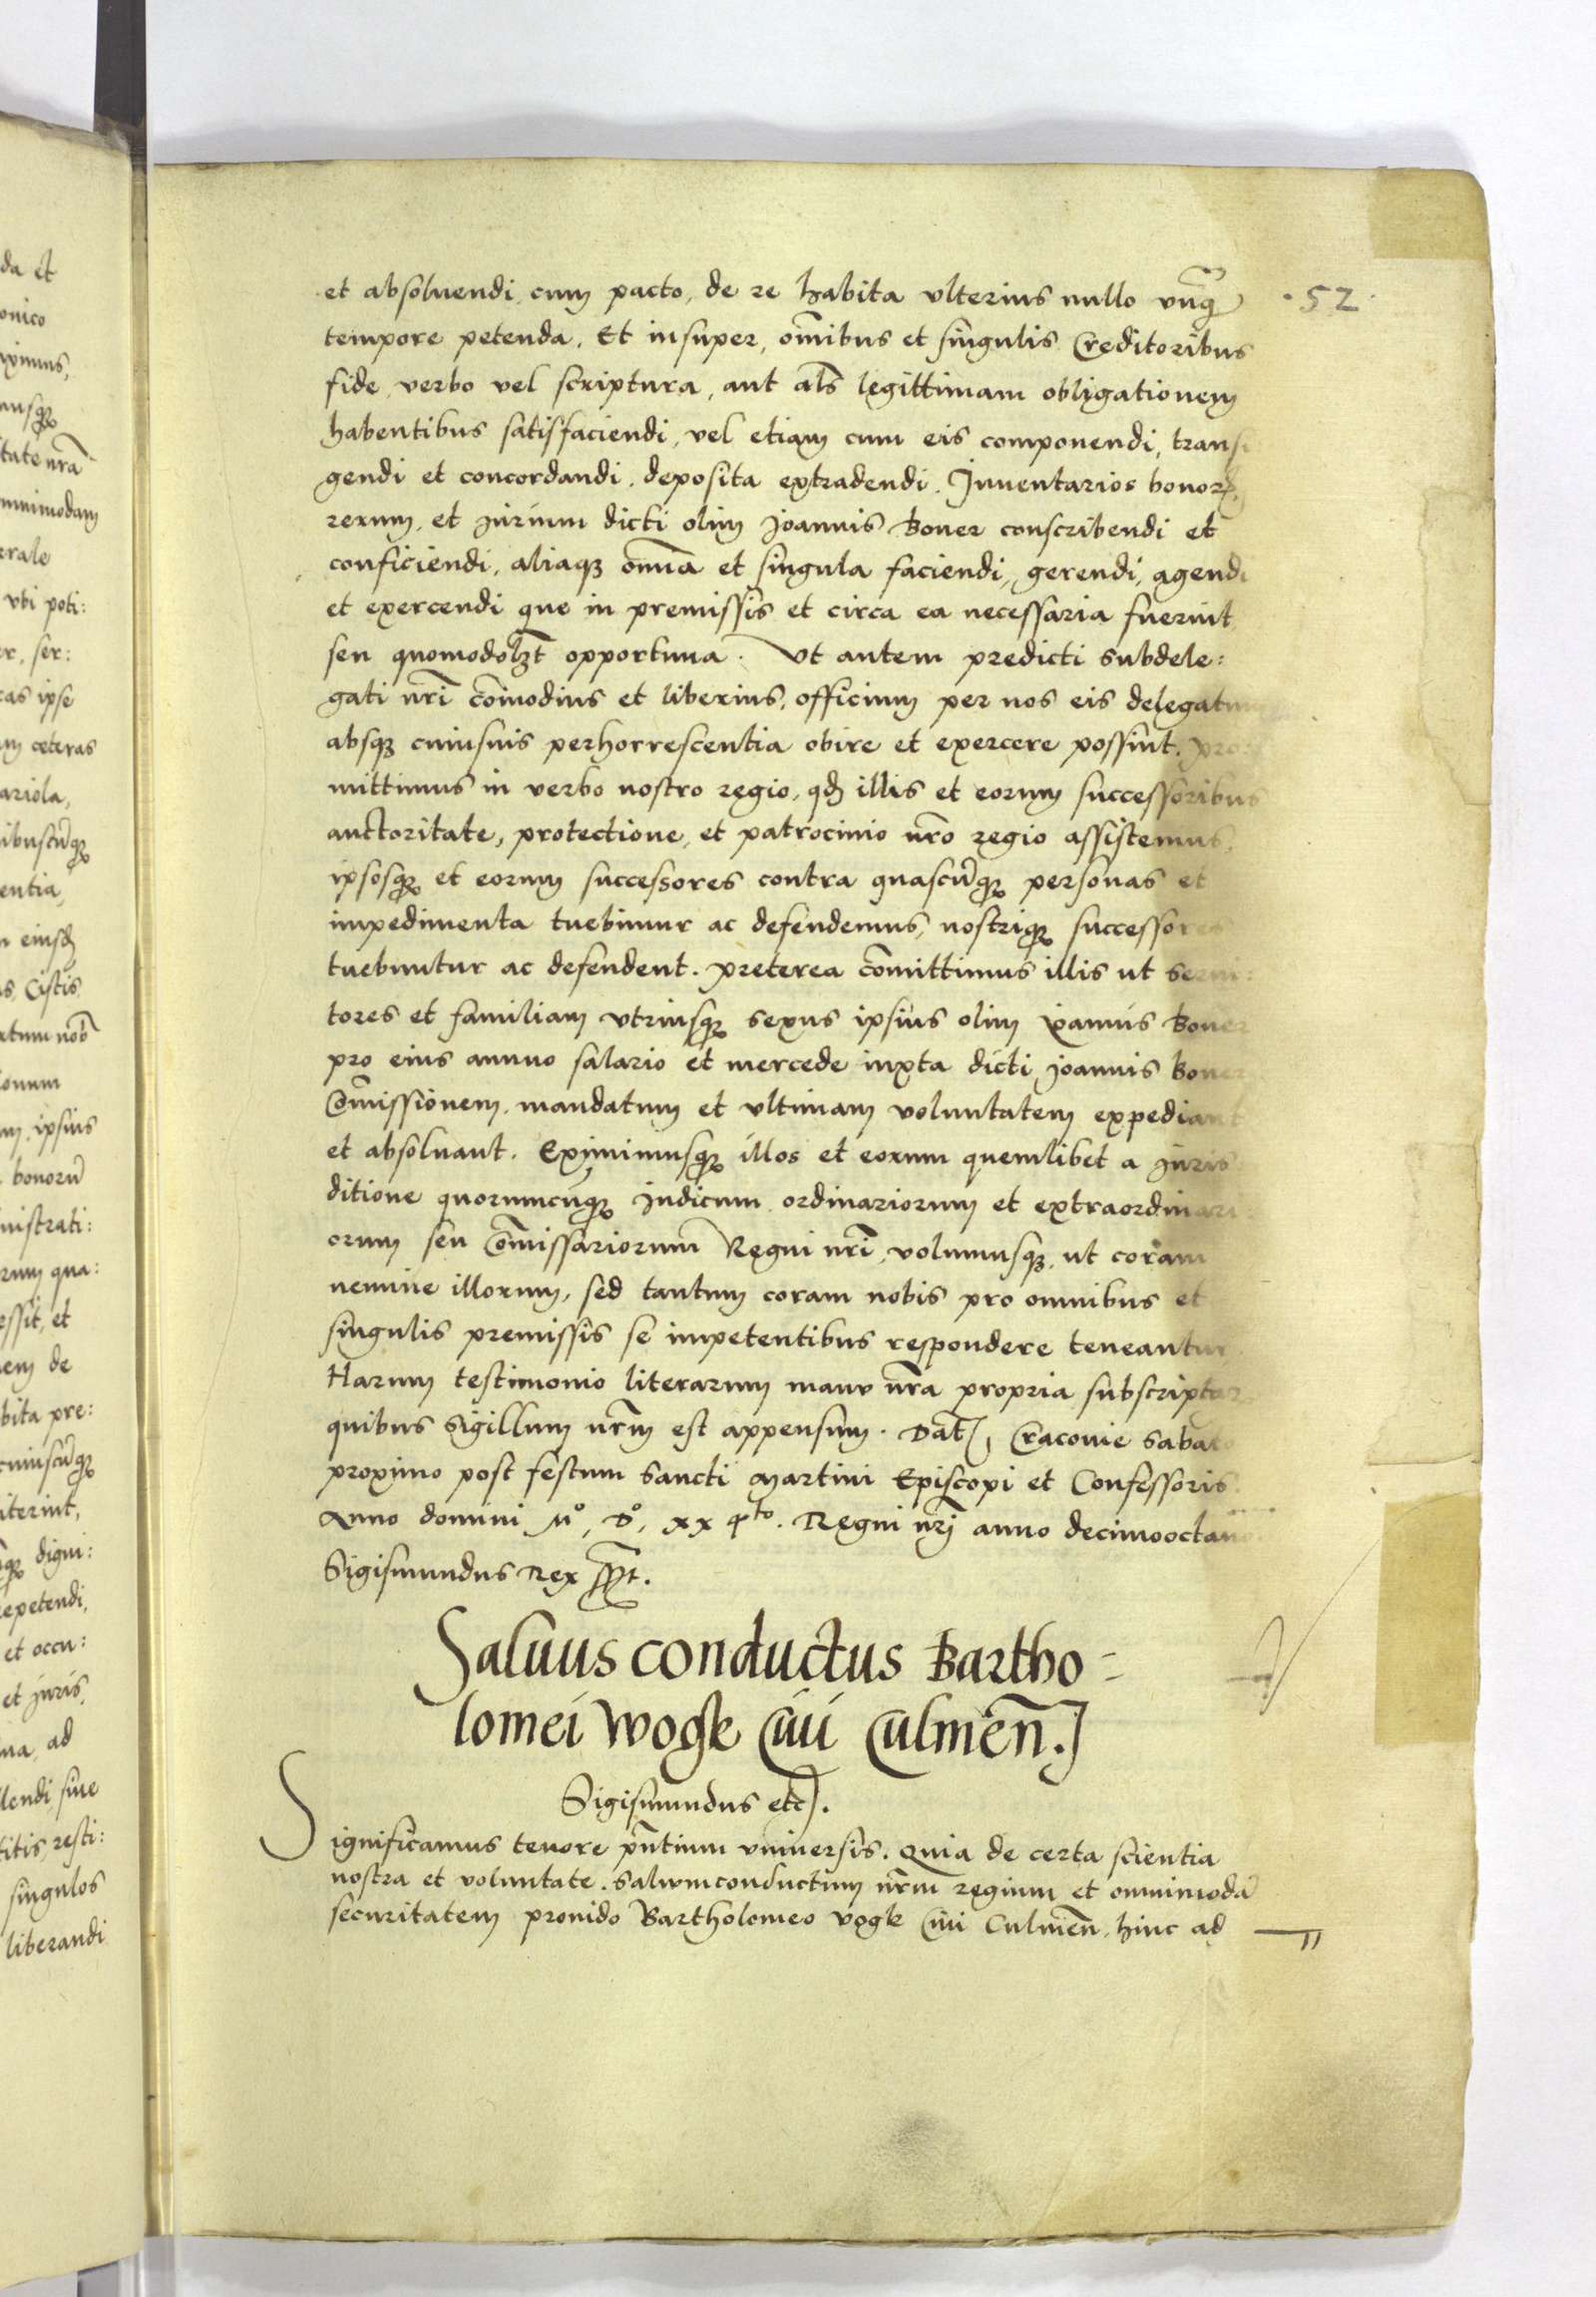 et absoluendi cum pacto, de re habita vlterius nullo vnq̃
·52·
tempore petenda. Et insuper, om̃ibus et singulis Creditoribus
fide, verbo vel scriptura, aut al̃s legittimam obligationem
habentibus satisfaciendi, vel etiam cum eis componendi, transi
gendi et concordandi, deposita extradendi. Inuentarios bonorꝝ,
rerum, et Jurium dicti olim Joannis Boner conscribendi et
conficiendi, aliaqꝫ om̃ia et singula faciendi, gerendi, agendi
et exercendi que in premissis et circa ea necessaria fuerint
seu quomodolꝫt opportuna. Vt autem predicti subdele:
gati nr̃i com̃odius et liberius, officium per nos eis delegatum
absqꝫ cuiusuis perhorrescentia obire et exercere possint. Pro
mittimus in verbo nostro regio, qđ illis et eorum successoribus
auctoritate, protectione, et patrocinio nr̃o regio assistemus,
ipsosqꝫ et eorum successores contra quascũqꝫ personas et
impedimenta tuebimur ac defendemus, nostriqꝫ successores
tuebuntur ac defendent. Preterea com̃ittimus illis ut serui:
tores et familiam vtriusqꝫ sexus ipsius olim Joannis Boner
pro eius annuo salario et mercede iuxta dicti Joannis Boner
Com̃issionem, mandatum et vltimam voluntatem expediant
et absoluant. Eximimusqꝫ illos et eorum quemlibet a Juris
ditione quorumcũqꝫ Judicum ordinariorum et extraordinari
orum seu Com̃issariorum Regni nr̃i, volumusqꝫ ut coram
nemine illorum, sed tantum coram nobis pro omnibus et
singulis premissis se impetentibus respondere teneantur.
Harum testimonio literarum manu nr̃a propria subscriptar
quibus Sigillum nr̃m est appensum. Dat̃, Cracouie Sabato
proximo post festum Sancti Martini Episcopi et Confessoris.
Anno domini Mº, Dº, xx 4to. Regni nr̃j anno decimooctauo
Sigismundus Rex sp̃t.
Saluus conductus Bartho=
lomei Wogk Ciui Culmeñ.
Sigismundus etc.
Significamus tenore pñtium vniuersis. Quia de certa scientia
nostra et voluntate. Saluumconductum nr̃m regium et omnimodã
securitatem prouido Bartholomeo Vogk Ciui Culmeñ. hinc ad